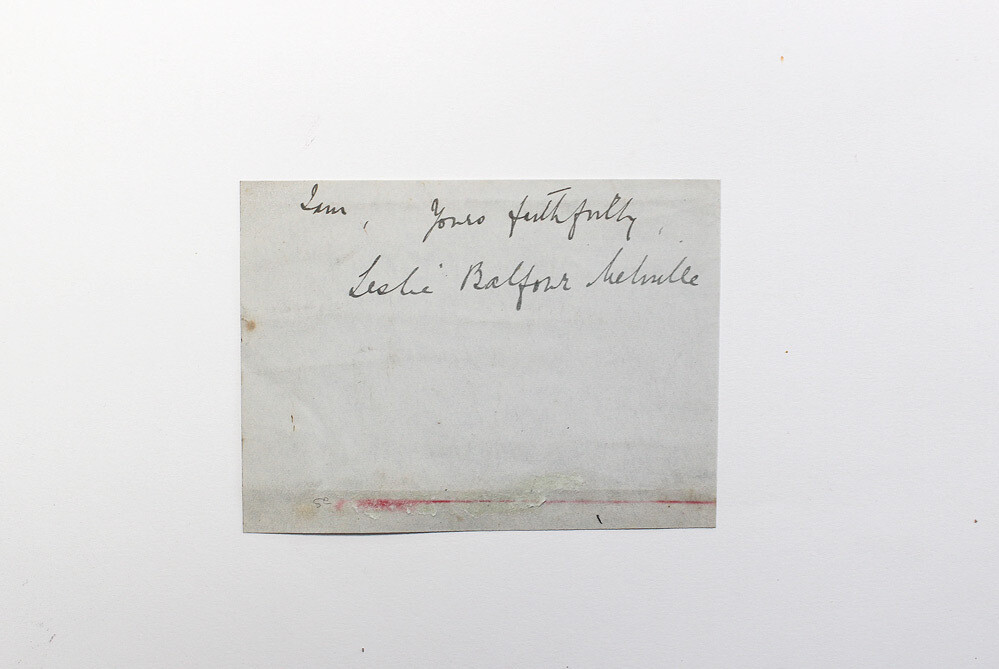 I am, Yours faithfully,
Leslie Balfour Melville
5-